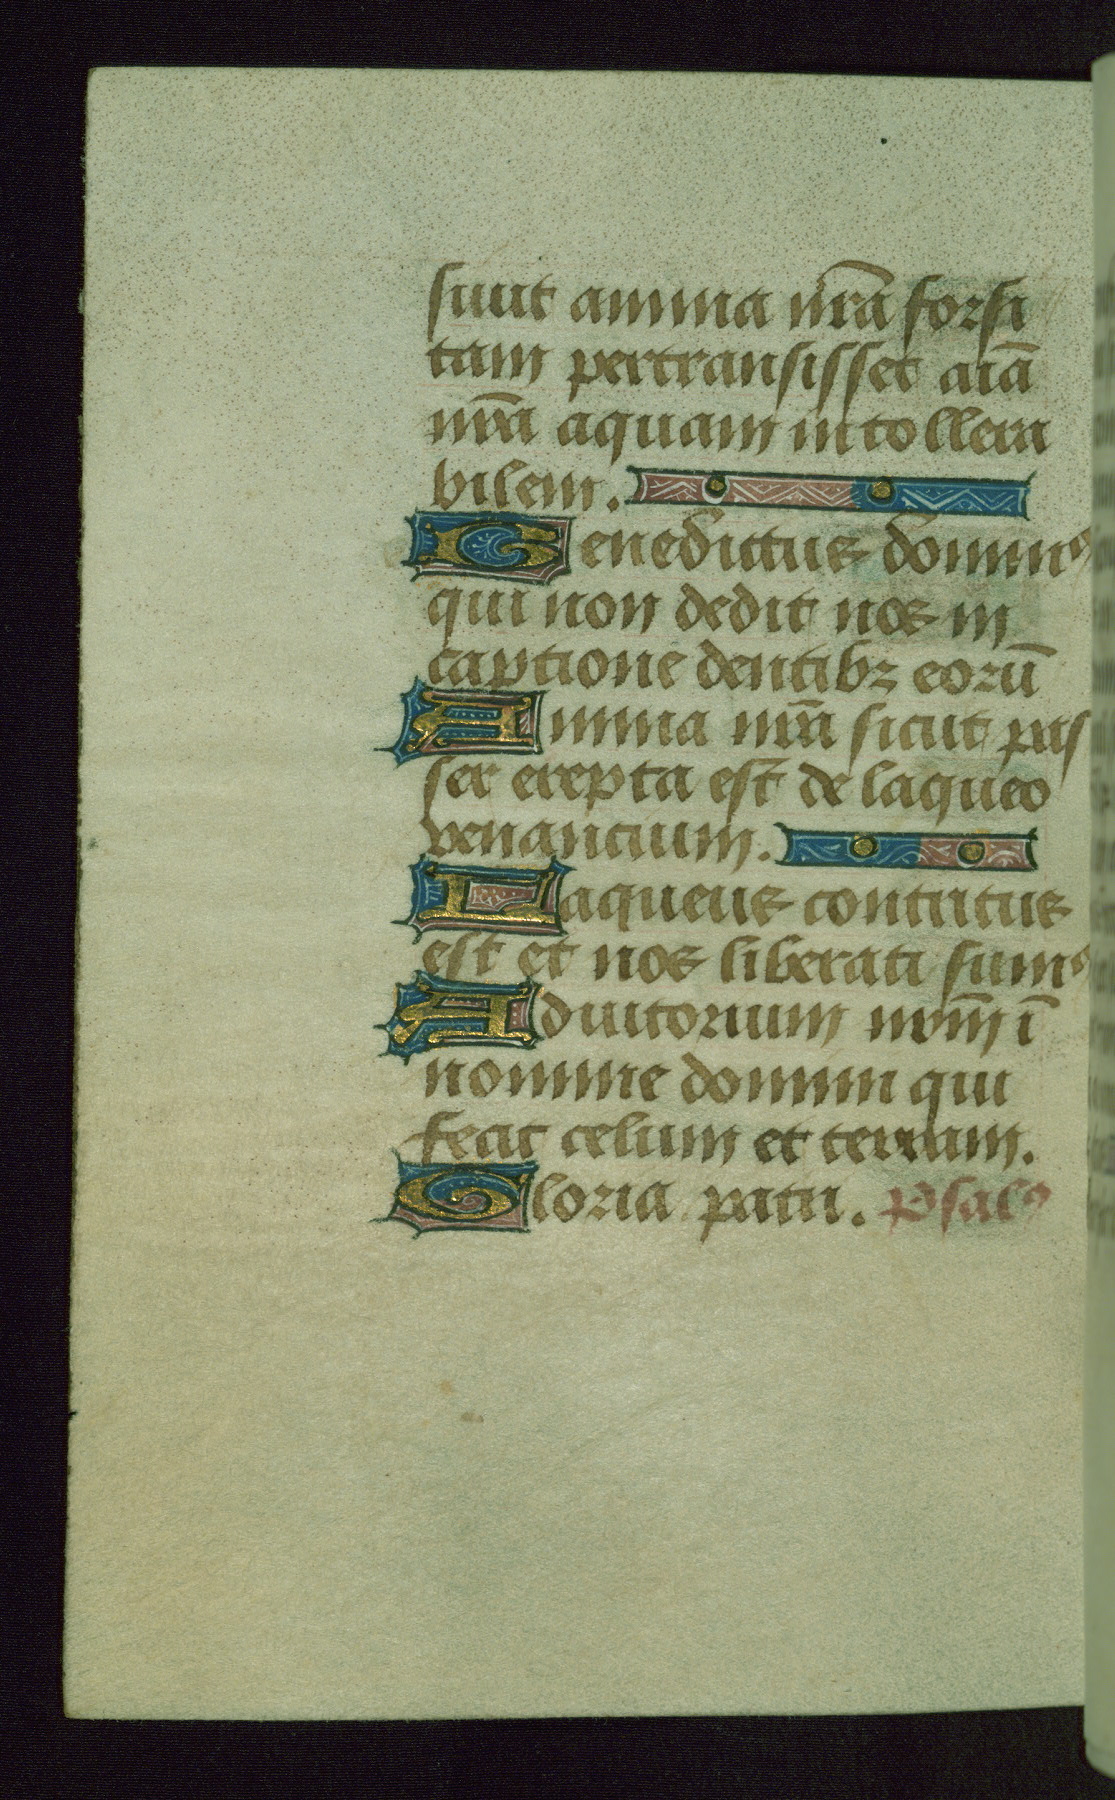 siuit anima nr̄a forsi
tam pertransisset aīa
nr̄a aquam intollera
bilem.
Benedictus domin⁹
qui non dedit nos in
captione dentibꝫ eorū
Anima nr̄a sicut pas
ser erepta est de laqueo
venancium.
Laqueus contritus
est et nos liberati sum⁹
Adiutorium nr̄m ī
nomine domini qui
fecit celum et terram.
Gloria patri. Psal⁹